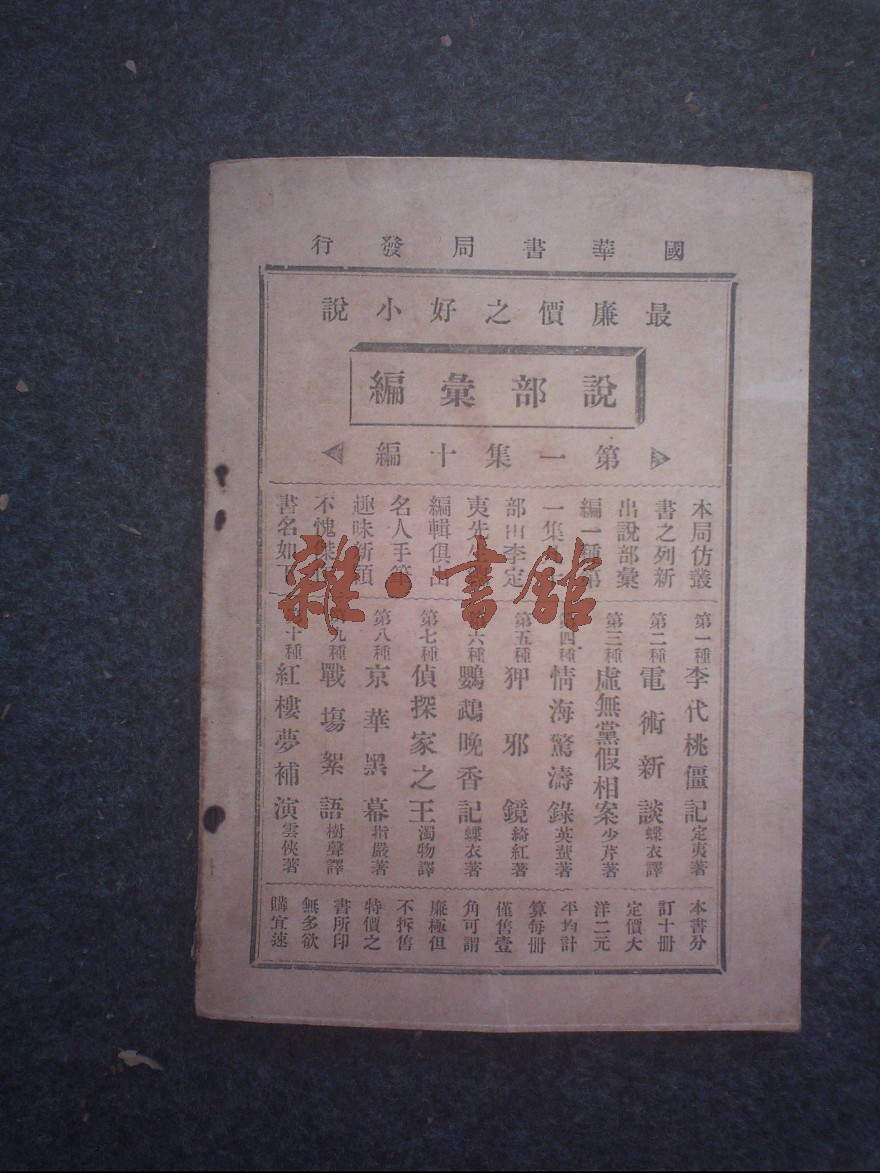 國華書局發行
最廉價之好小說
說部彙編
第一集十編
本局仿叢
書之列新
出說部彙
編一種第
一集
部由李定
夷先生
編輯俱出
名人手筆
趣味新穎
不愧傑作
書名如下
第一種李代桃僵記定夷著
第二種電術新談蝶衣譯
第三種虛無黨假相案少芹著
第四種情海驚濤錄英蜚著
第五種狎邪鏡綺紅著
第六種鸚鵡晚香記蝶衣著
第七種偵探家之王濁物譯
第八種京華黑幕指嚴著
第九種戰塲絮語樹聲譯
第十種紅樓夢補演雲俠著
本書分
訂十册
定價大
洋二元
平均計
算每册
僅售壹
角可謂
廉極但
不拆售
特價之
書所印
無多欲
購宜速
雜·書館